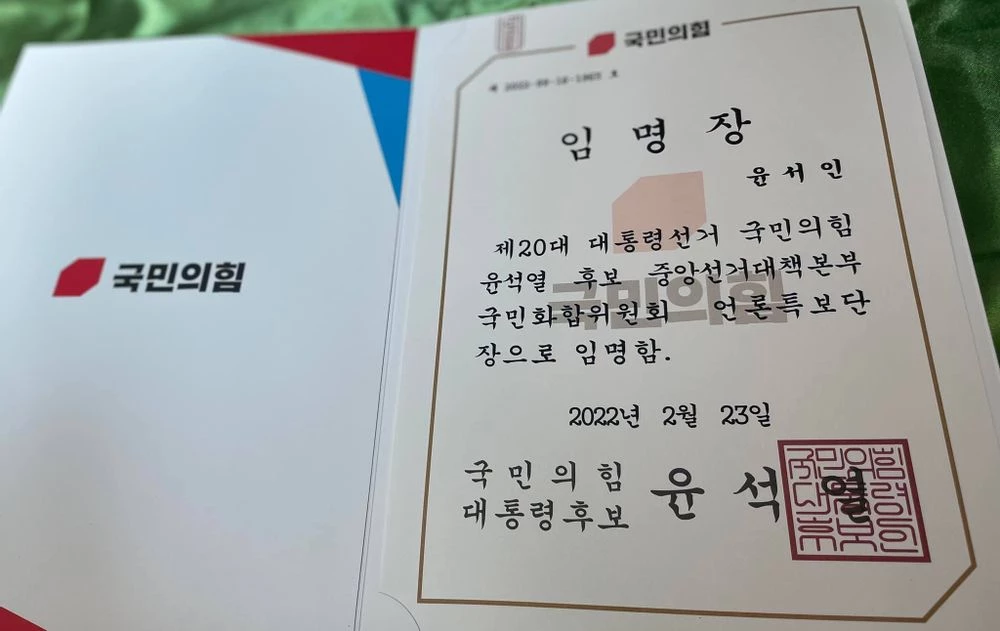 국민의힘
국민의힘
임명장
윤서인
제20대 대통령선거 국민의힘
윤석열 후보 중앙선거대책본부
국민화합위원회 언론특보단
장으로 임명함.
2022년 2월 23일
국민의힘
대통령후보 윤석열
국민의힘